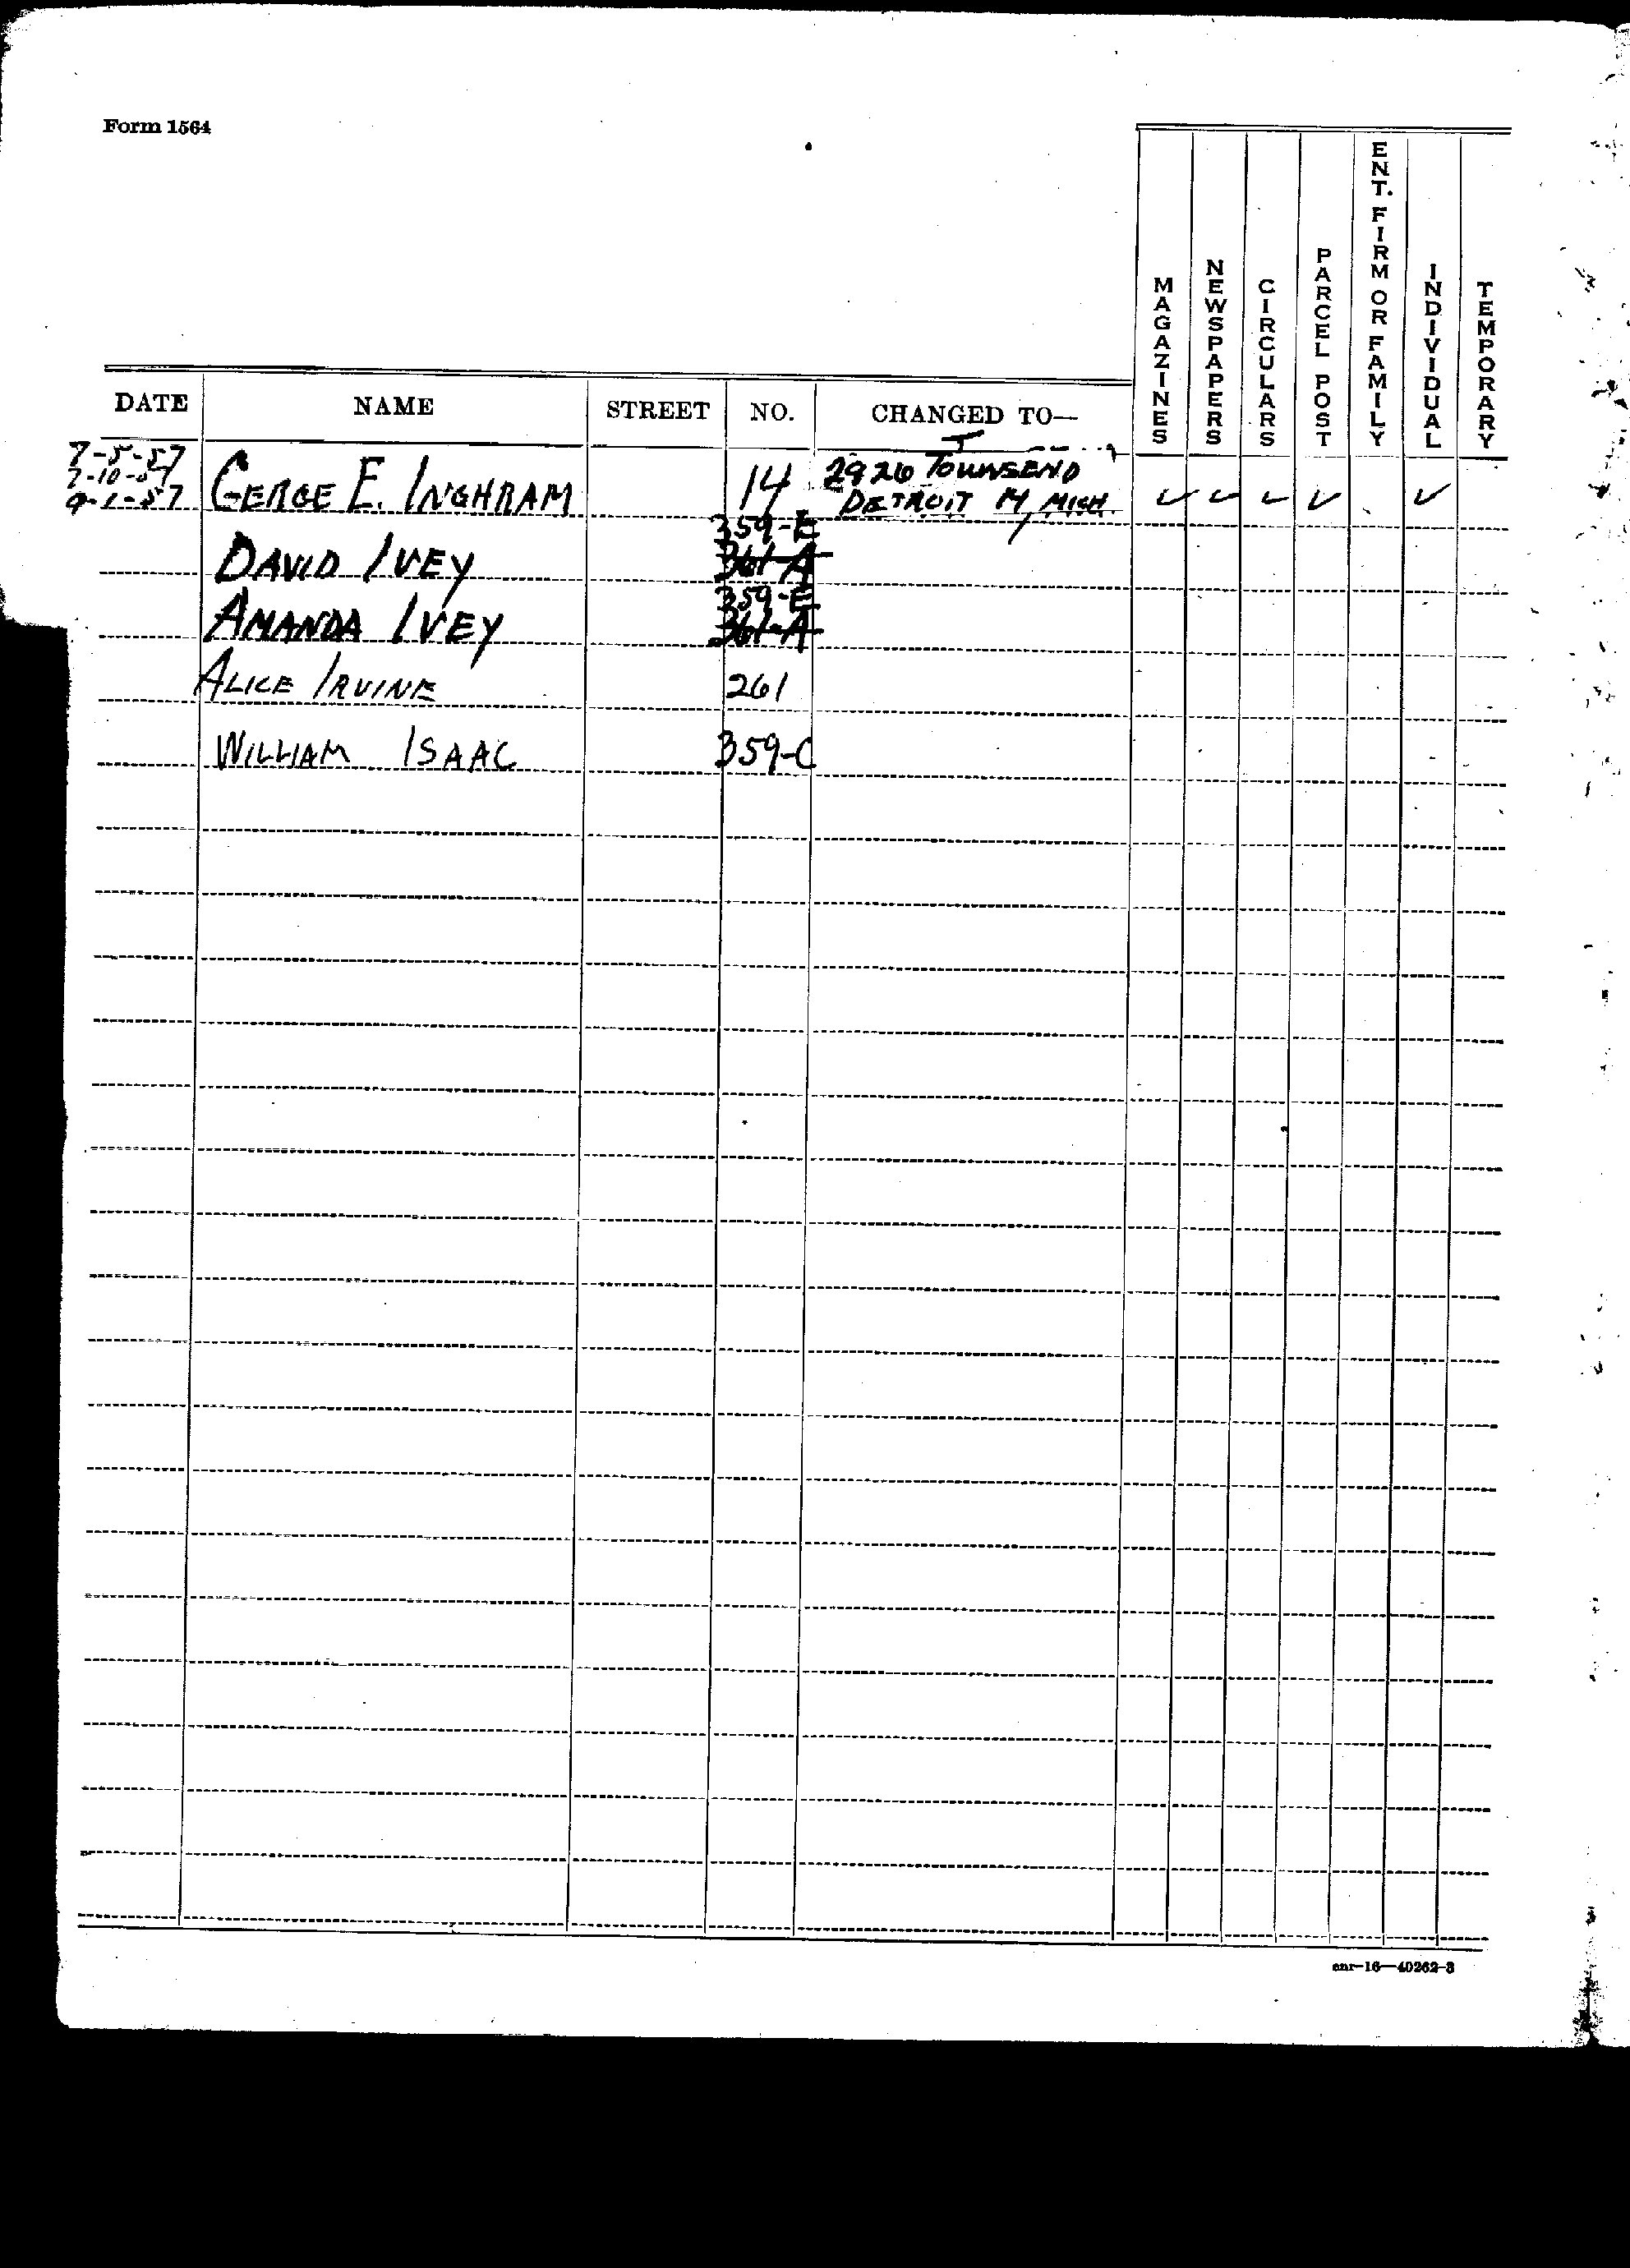 Form 1564
MAGAZINES NEWSPAPERS CIRCULARS PARCEL POST ENT. FIRM OR FAMILY INDIVIDUAL TEMPORARY
DATE NAME STREET NO. CHANGED TO—
7-5-57
7-10-57 2926 TOWNSEND
9-1-57 GERGE E. INGHRAM 14 DETROIT 14, MICH. ✓ ✓ ✓ ✓ ✓
359-E
DAVID IVEY 361-A
359-E
AMANDA IVEY 361-A
ALICE IRVINE 261
WILLIAM ISAAC 359-C
enr—16—40262-3